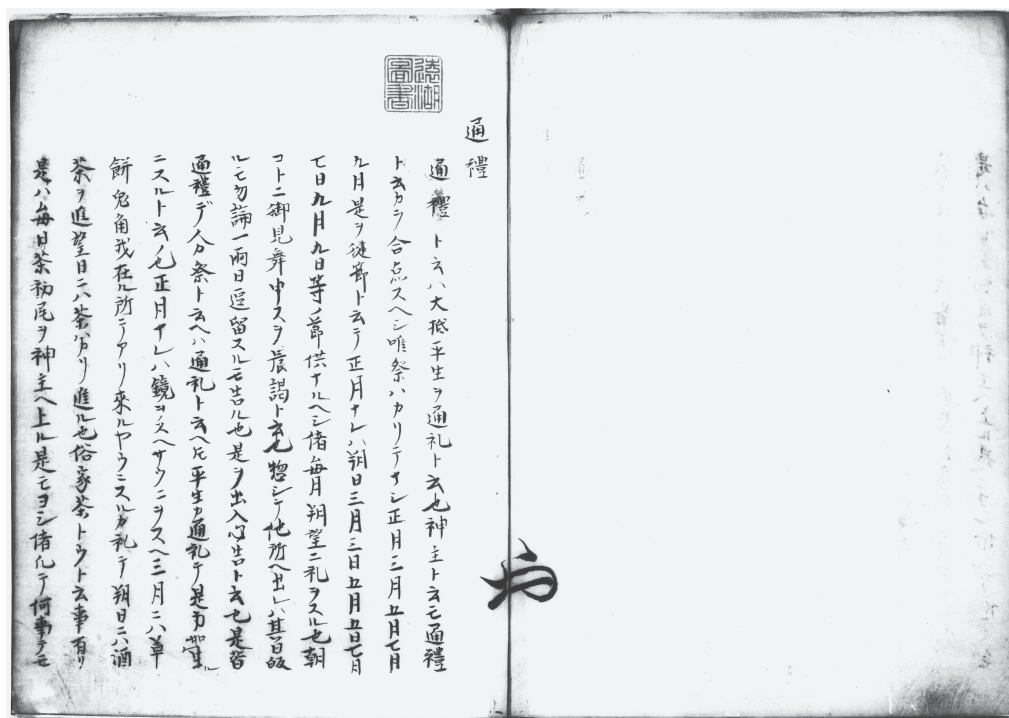 遠湖
圖書
通禮
通禮ト云ハ大抵平生ヲ通礼ト云也神主ト云モ通禮
ト云カラ合点スヘシ唯祭ハカリテナシ正月三月五月七月
九月是ヲ徤節ト云テ正月ナレハ朔日三月三日五月五日七月
七日九月九日等ノ節供ナルヘシ偖毎月朔望ニ礼ヲスル也朝
コトニ御見舞申スヲ晨謁ト云也惣シテ他所ヘ出レハ其旨
ルモ勿論一兩日逗留スルモ告ル也是ヲ出入必告ト云也是皆
通禮デ人カ祭ト云ヘハ通礼ト云ヘ𪜈平生カ通礼テ是カ如生
ニスルト云ノ也正月ナレハ鏡ヲスヘサウニヲスヘ三月ニハ草
餅兎角我在ル所ニアリ來ルヤウニスルカ礼テ朔日ニハ酒
茶ヲ進望日ニハ茶ハカリ進ル也俗家茶トウト云事有リ
是ハ毎日茶初尾ヲ神主ヘ上ル是モヨシ偖化テ何事テモ